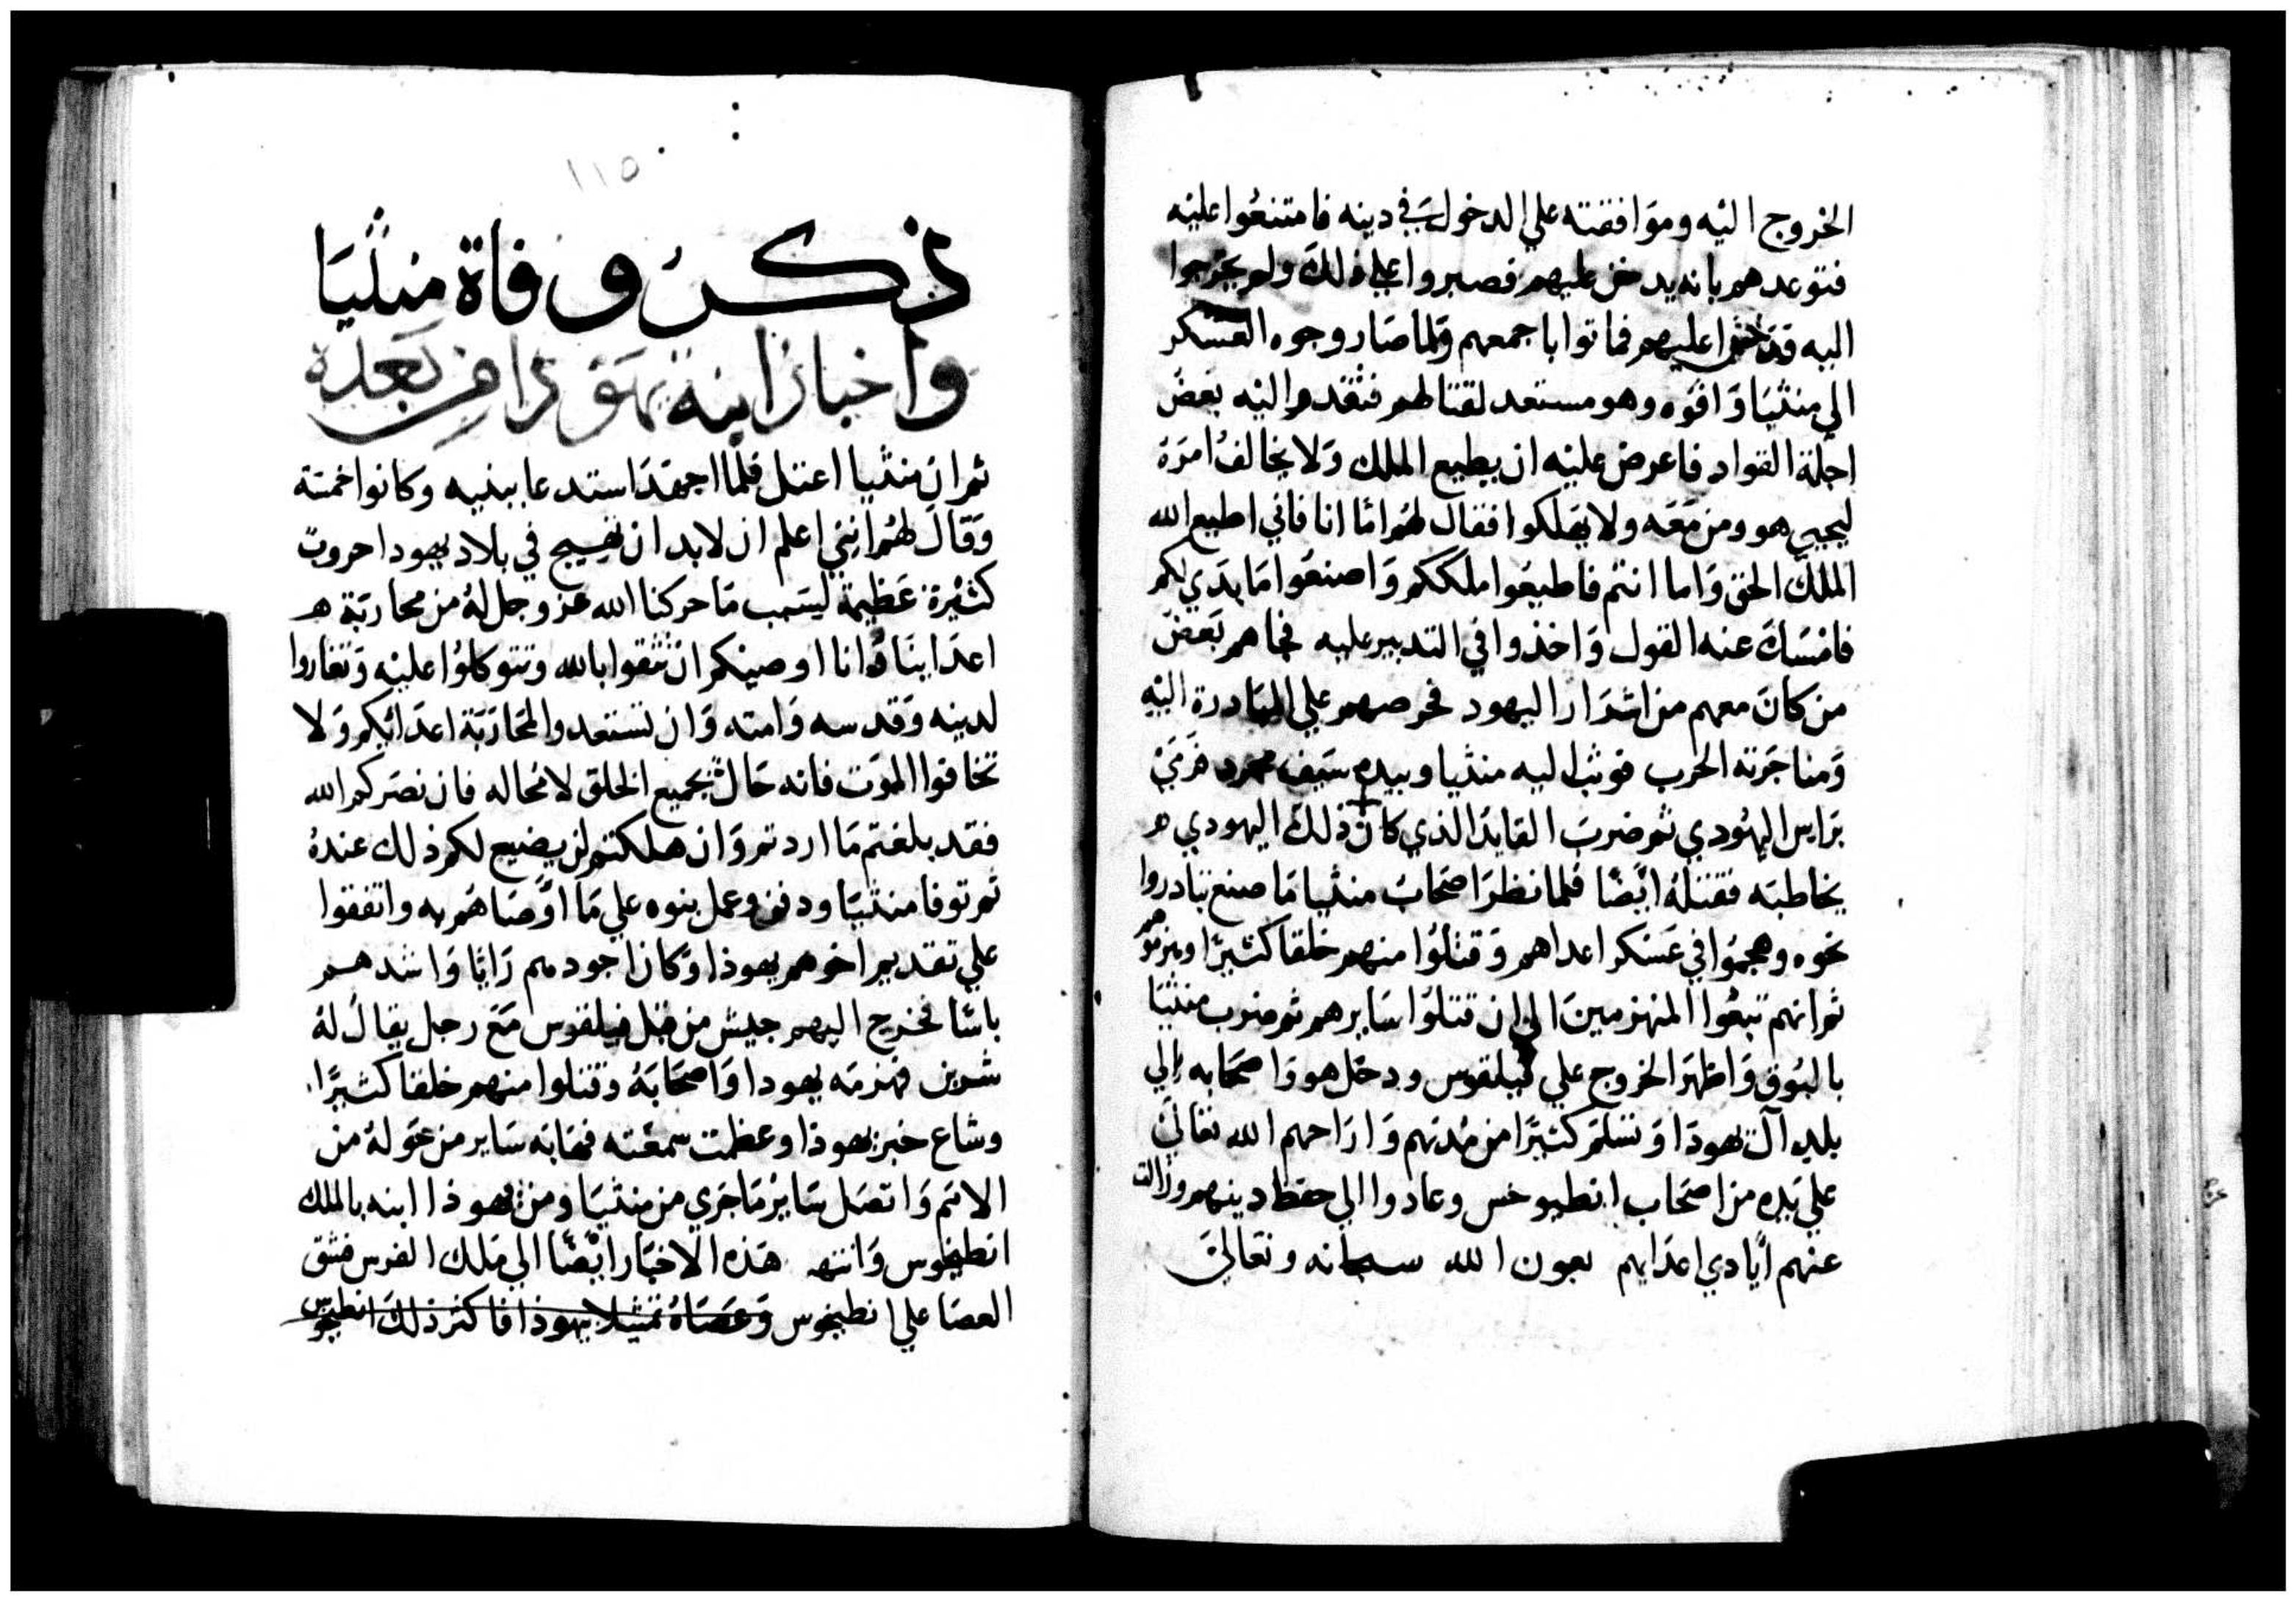 الخروج اليه وموافقته علي الدخول في دينه فامتنعوا عليه
فتوعدهم بانه يدخن عليهم فصبروا علي ذلك ولم يخرجوا
اليه فدخنوا عليهم فماتوا باجمعهم ولما صار وجوه العسكر
الي منثيا وافوه وهو مستعد لقتالهم فتقدم اليه بعض
اجلة القواد فاعرض عليه ان يطيع الملك ولا يخالف امره
ليحيي هو ومن معه ولا يهلكوا فقال لهم اما انا فاني اطيع الله
الملك الحق واما انتم فاطيعوا ملككم واصنعوا ما بدي لكم
فامسك عنه القول واخذوا في التدبير عليه فجاهم بعض
من كان معهم من اشرار اليهود فحرصهم علي المبادرة اليه
ومناجزته الحرب فوثب اليه منثيا وبيده سيف مجرد فرمي
براس اليهودي ثم ضرب القايد الذي كان ذلك اليهودي ه
يخاطبه فقتله ايضا فلما نظر اصحاب منثيا ما صنع تبادروا
نحوه وهجموا في عسكر اعداهم وقتلوا منهم خلقا كثيرا وهزموهم
ثم انهم تبعوا المنهزمين الي ان قتلوا سايرهم ثم ضرب منثيا
بالبوق واظهر الخروج علي فيلقوس ودخل هو واصحابه الي
بلد آل يهودا وتسلم كثيرا من مدنهم واراحهم الله تعالي
علي يده من اصحاب انطيوخس وعادوا الي حفظ دينهم وزالت
عنهم ايادي اعدايهم بعون الله سبحانه وتعالي
١١٥
ذكر وفاة منثيا
واخبار ابنه يهودا من بعده
ثم ان منثيا اعتل فلما اجهد استدعا ببنيه وكانوا خمسة
وقال لهم انني اعلم ان لابد ان تهيج في بلاد يهودا حروب
كثيرة عظيمة لسبب ما حركنا الله عز وجل له من محاربة ه
اعداينا وانا اوصيكم ان تثقوا بالله وتتوكلوا عليه وتغاروا
لدينه وقدسه وامته وان تستعدوا لمحاربة اعدائكم ولا
تخافوا الموت فانه حال بجميع الخلق لا محاله فان نصركم الله
فقد بلغتم ما اردتم وان هلكتم لن يضيع لكم ذلك عنده
ثم توفا منثيا ودفن وعمل بنوه علي ما اوصاهم به واتفقوا
علي تقديم اخوهم يهوذا وكان اجودهم رايا واشدهم
باسا فخرج اليهم جيش من قبل فيلقوس مع رجل يقال له
شرين فهزمه يهودا واصحابه وقتلوا منهم خلقا كثيرا
وشاع خبر يهوذا وعظمت سمعته فهابه ساير من حوله من
الامم واتصل ساير ما جري من منثيا ومن يهوذا ابنه بالملك
انطيخوس وانته هذه الاخبار ايضا الي ملك الفرس فشق
العصا علي انطيخوس وعصاه تمثيلا بيهوذا فاكثر ذلك انطيخوس